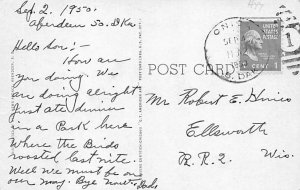 Sep. 2. 1950.
Aberdeen So. Dka.
Hello Son:-
How are
you doing. We
are doing alright
just ate dinner
in a Park here
Where the Birds
roosted last nite.
Well we must be on
our way. Bye now.
POST CARD
UNITED STATES POSTAGE
1 CENT 1
S. DAK.
Mr Robert E.
Ellsworth
R.R.2. Wis.